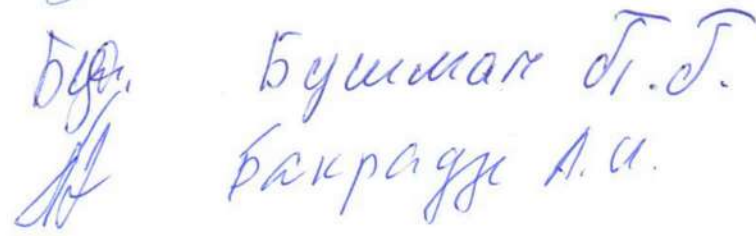 Бушман Т.Б.
Бакрадзе А.И.